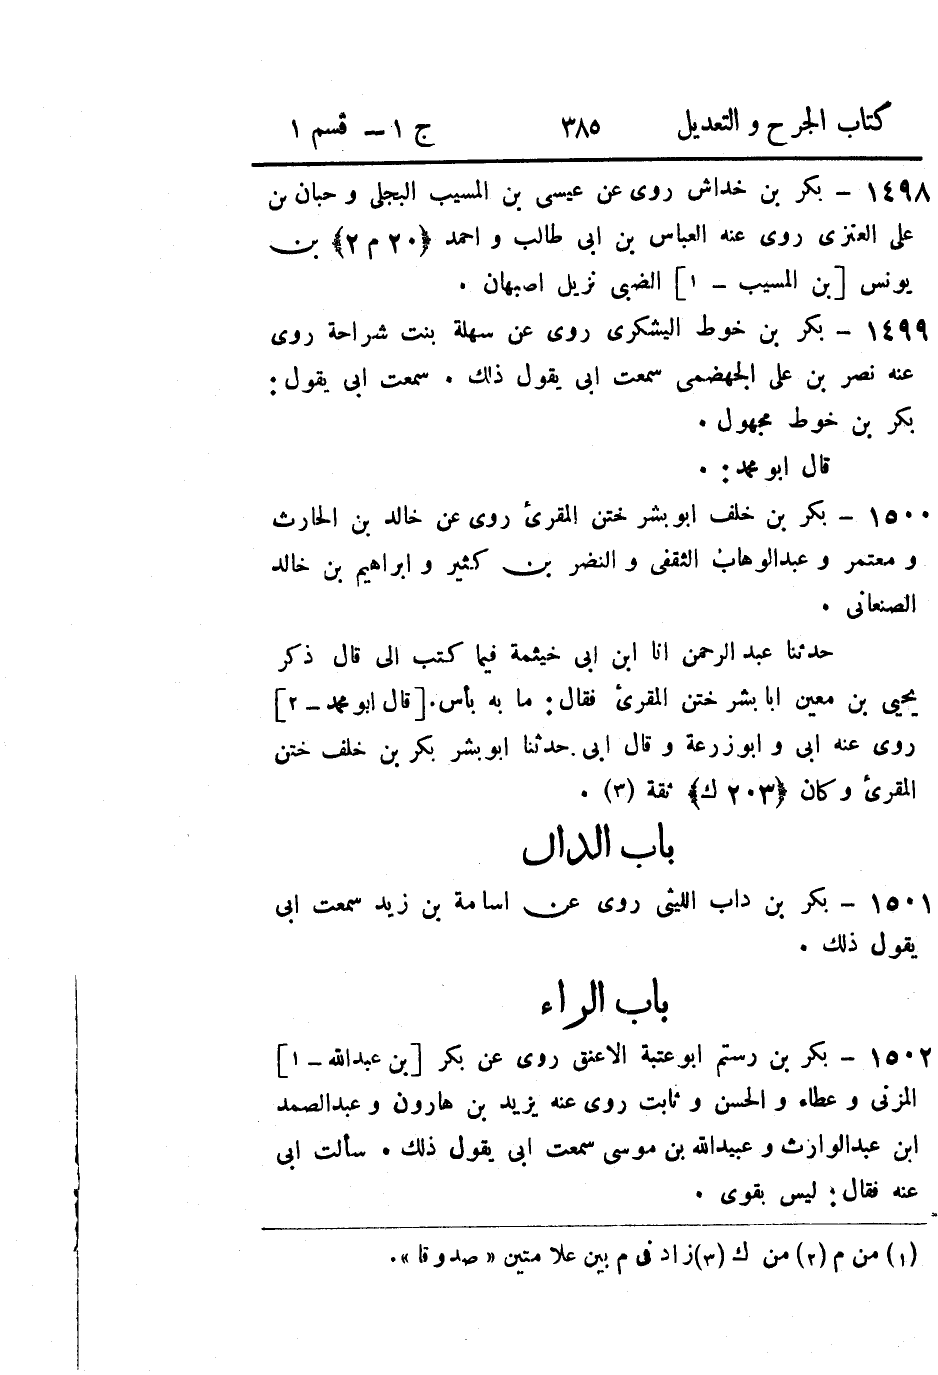 كتاب الجرح و التعديل ٣٨٥ ج ١ – قسم ١
١٤٩٨ – بكر بن خداش روى عن عيسى بن المسيب البجلى و حبان بن
على العنزى روى عنه العباس بن ابى طالب و احمد ﴿٢٠ م ٢﴾ بن
يونس [بن المسيب – ١] الضبى نزيل اصبهان .
١٤٩٩ – بكر بن خوط اليشكرى روى عن سهلة بنت شراحة روى
عنه نصر بن على الجهضمى سمعت ابى يقول ذلك . سمعت ابى يقول :
بكر بن خوط مجهول .
قال ابو محمد : .
١٥٠٠ – بكر بن خلف ابو بشر ختن المقرئ روى عن خالد بن الحارث
و معتمر و عبدالوهاب الثقفى و النضر بن كثير و ابراهيم بن خالد
الصنعانى .
حدثنا عبد الرحمن انا ابن ابى خيثمة فيما كتب الى قال ذكر
يحيى بن معين ابا بشر ختن المقرئ فقال : ما به بأس . [قال ابو محمد – ٢]
روى عنه ابى و ابو زرعة و قال ابى . حدثنا ابو بشر بكر بن خلف ختن
المقرئ و كان ﴿٢٠٣ ك﴾ ثقة (٣) .
باب الدال
١٥٠١ – بكر بن داب الليثى روى عن اسامة بن زيد سمعت ابى
يقول ذلك .
باب الراء
١٥٠٢ – بكر بن رستم ابو عتبة الاعنق روى عن بكر [بن عبدالله – ١]
المزنى و عطاء و الحسن و ثابت روى عنه يزيد بن هارون و عبدالصمد
ابن عبدالوارث و عبيدالله بن موسى سمعت ابى يقول ذلك . سألت ابى
عنه فقال : ليس بقوى .
(١) من م (٢) من ك (٣) زاد فى م بين علامتين « صدوقا » .